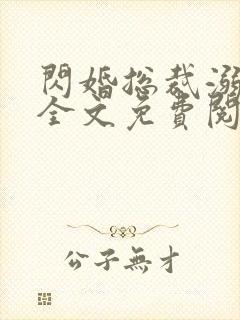 閃婚総裁溺
全文免費閱
公子無才